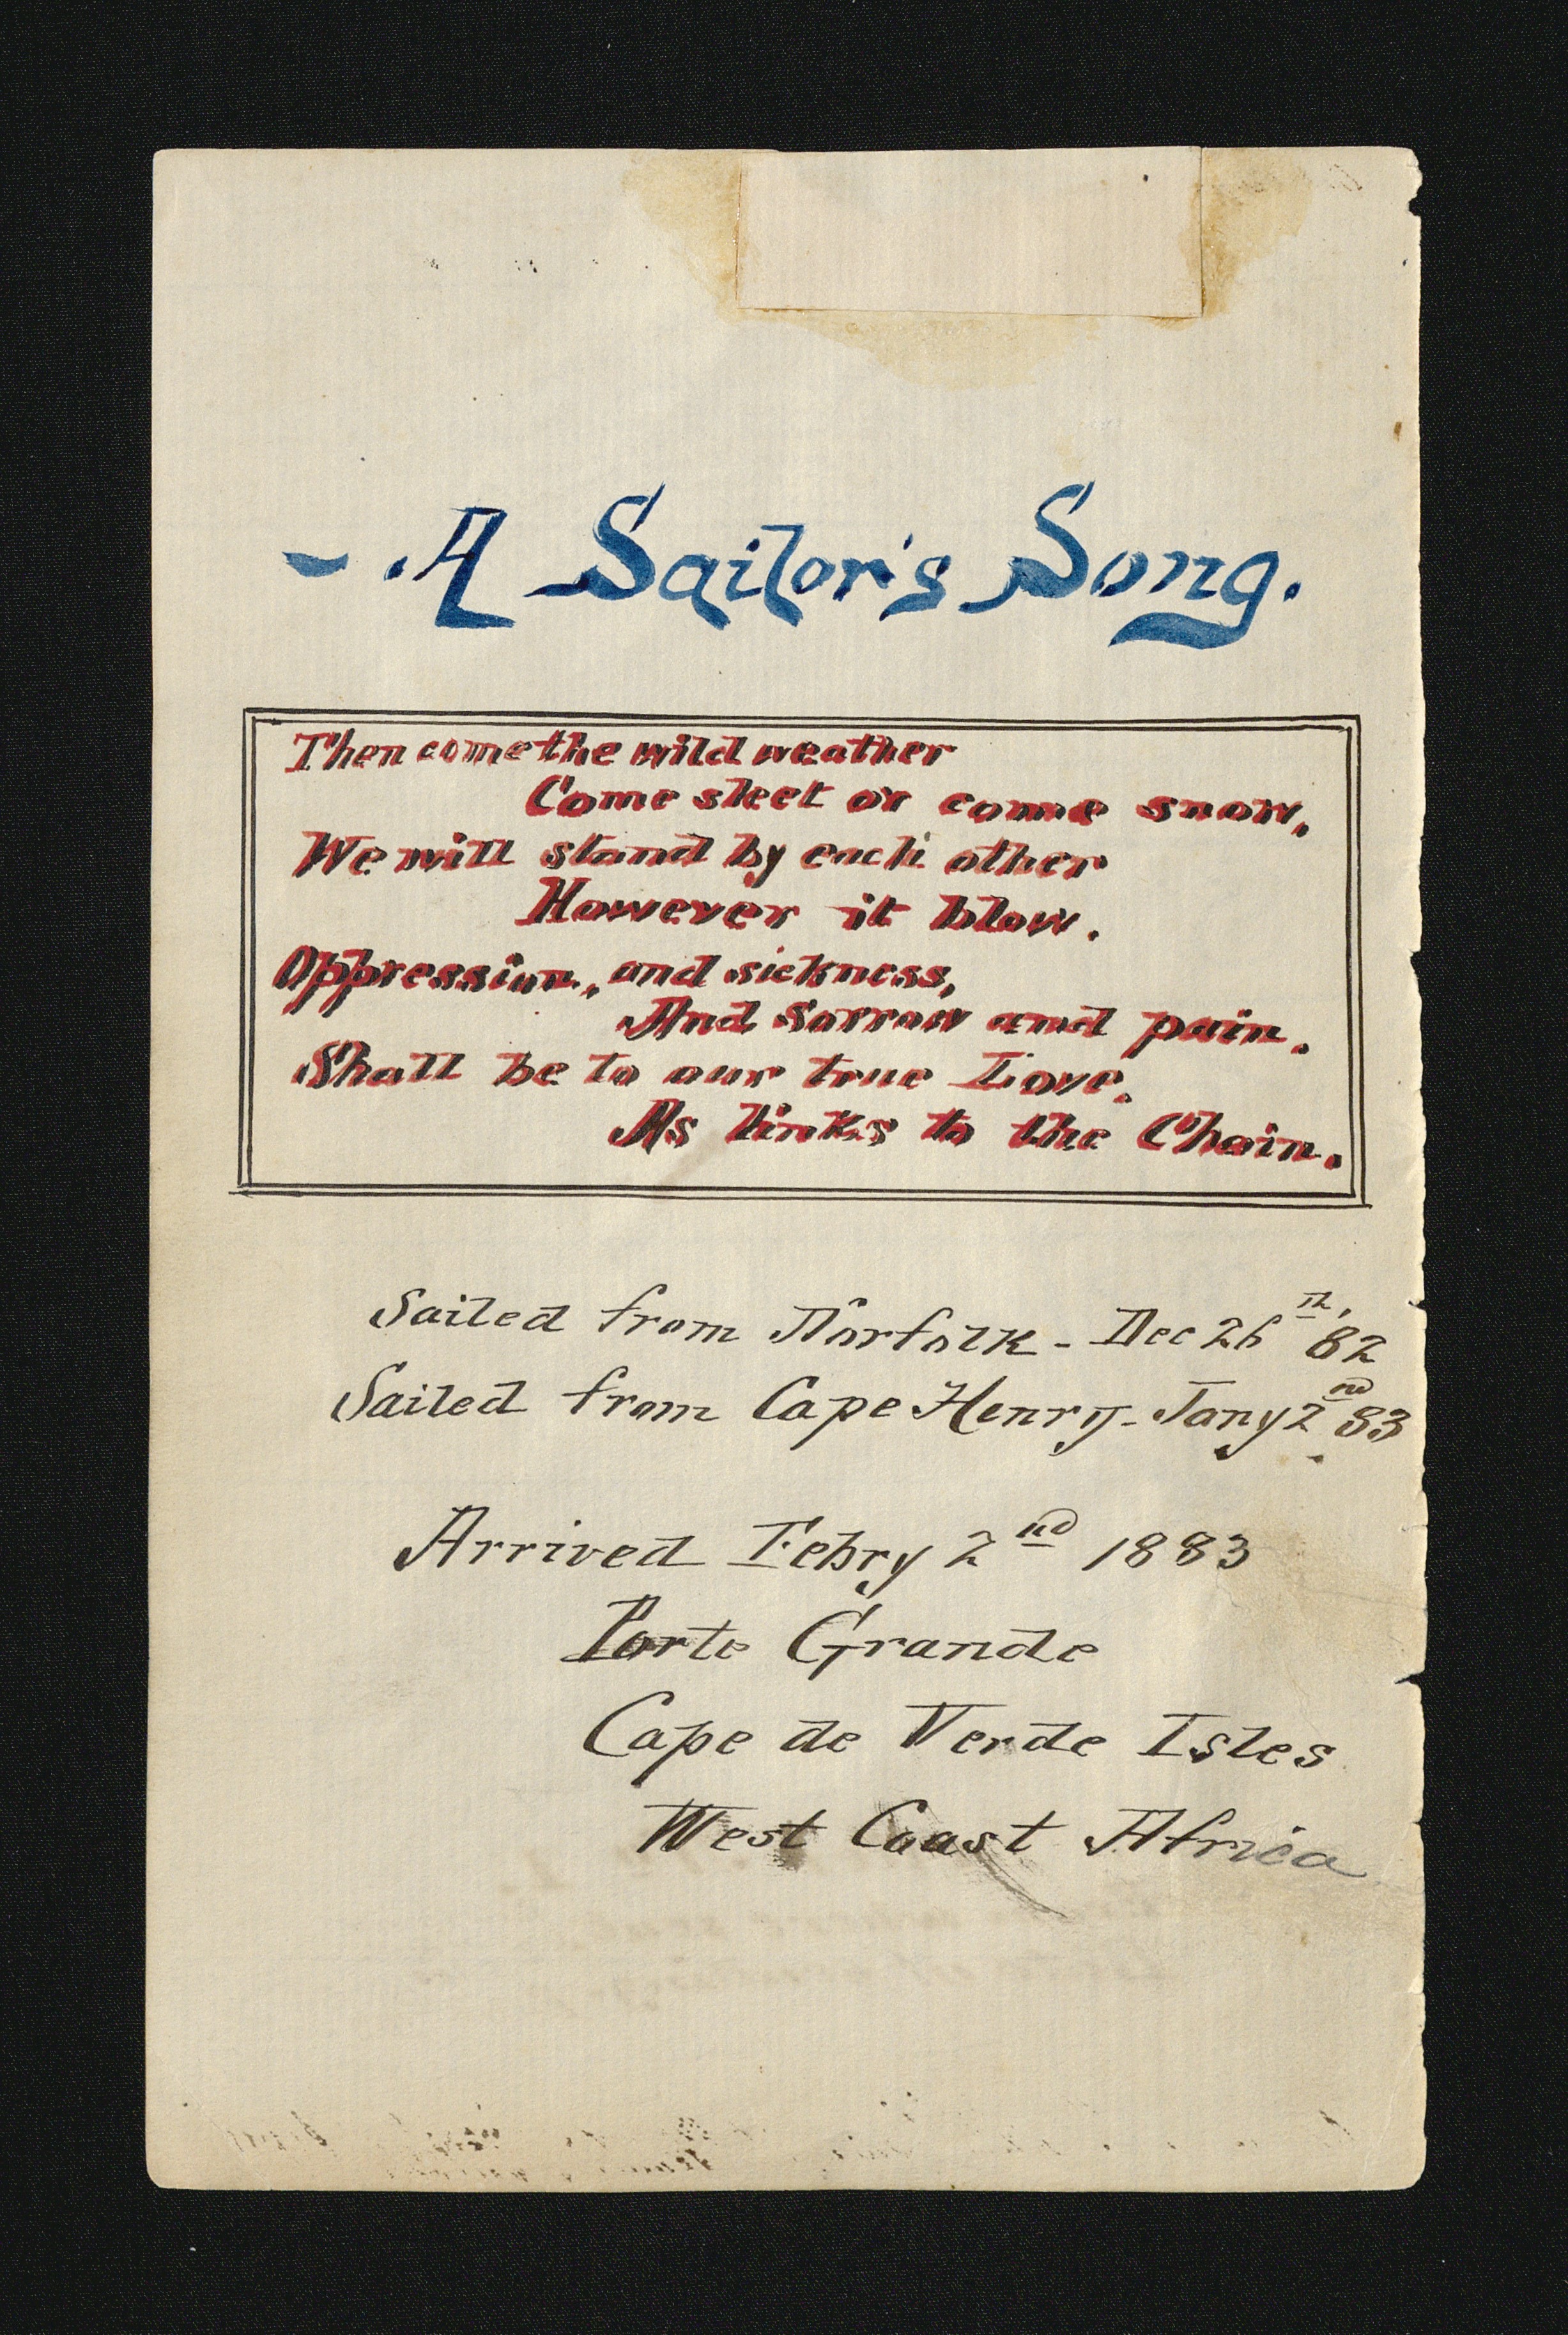 - . A Sailor's Song.
Then come the wild weather
Come sleet or come snow,
We will stand by each other
However it blow.
Oppression, and sickness,
And Sorrow and pain.
Shall be to our true Love.
As links to the Chain.
Sailed from Norfolk - Dec 26th, 82
Sailed from Cape Henry - Jany 2nd 83
Arrived Febry 2nd 1883
Porte Grande
Cape de Verde Isles
West Coast Africa